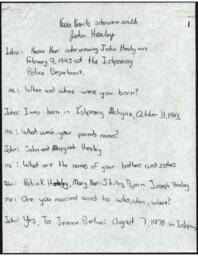 Kevin Kari's interview with
John Healey
John: Kevin Kari interviewing John Healey on
February 9, 1993 at the Ishpeming
Police Department.
me: When and where were you born?
John: I was born in Ishpeming, Michigan, October 31, 19
me: What were your parents names?
John: John and Margaret Healey
me: What are the names of your brothers and sisters
Patrick Healey, Mary Joseph Healey
me: Are you married and to who, when, where?
John: Yes, To Jeanne August 7, 1976 in Ishpeming